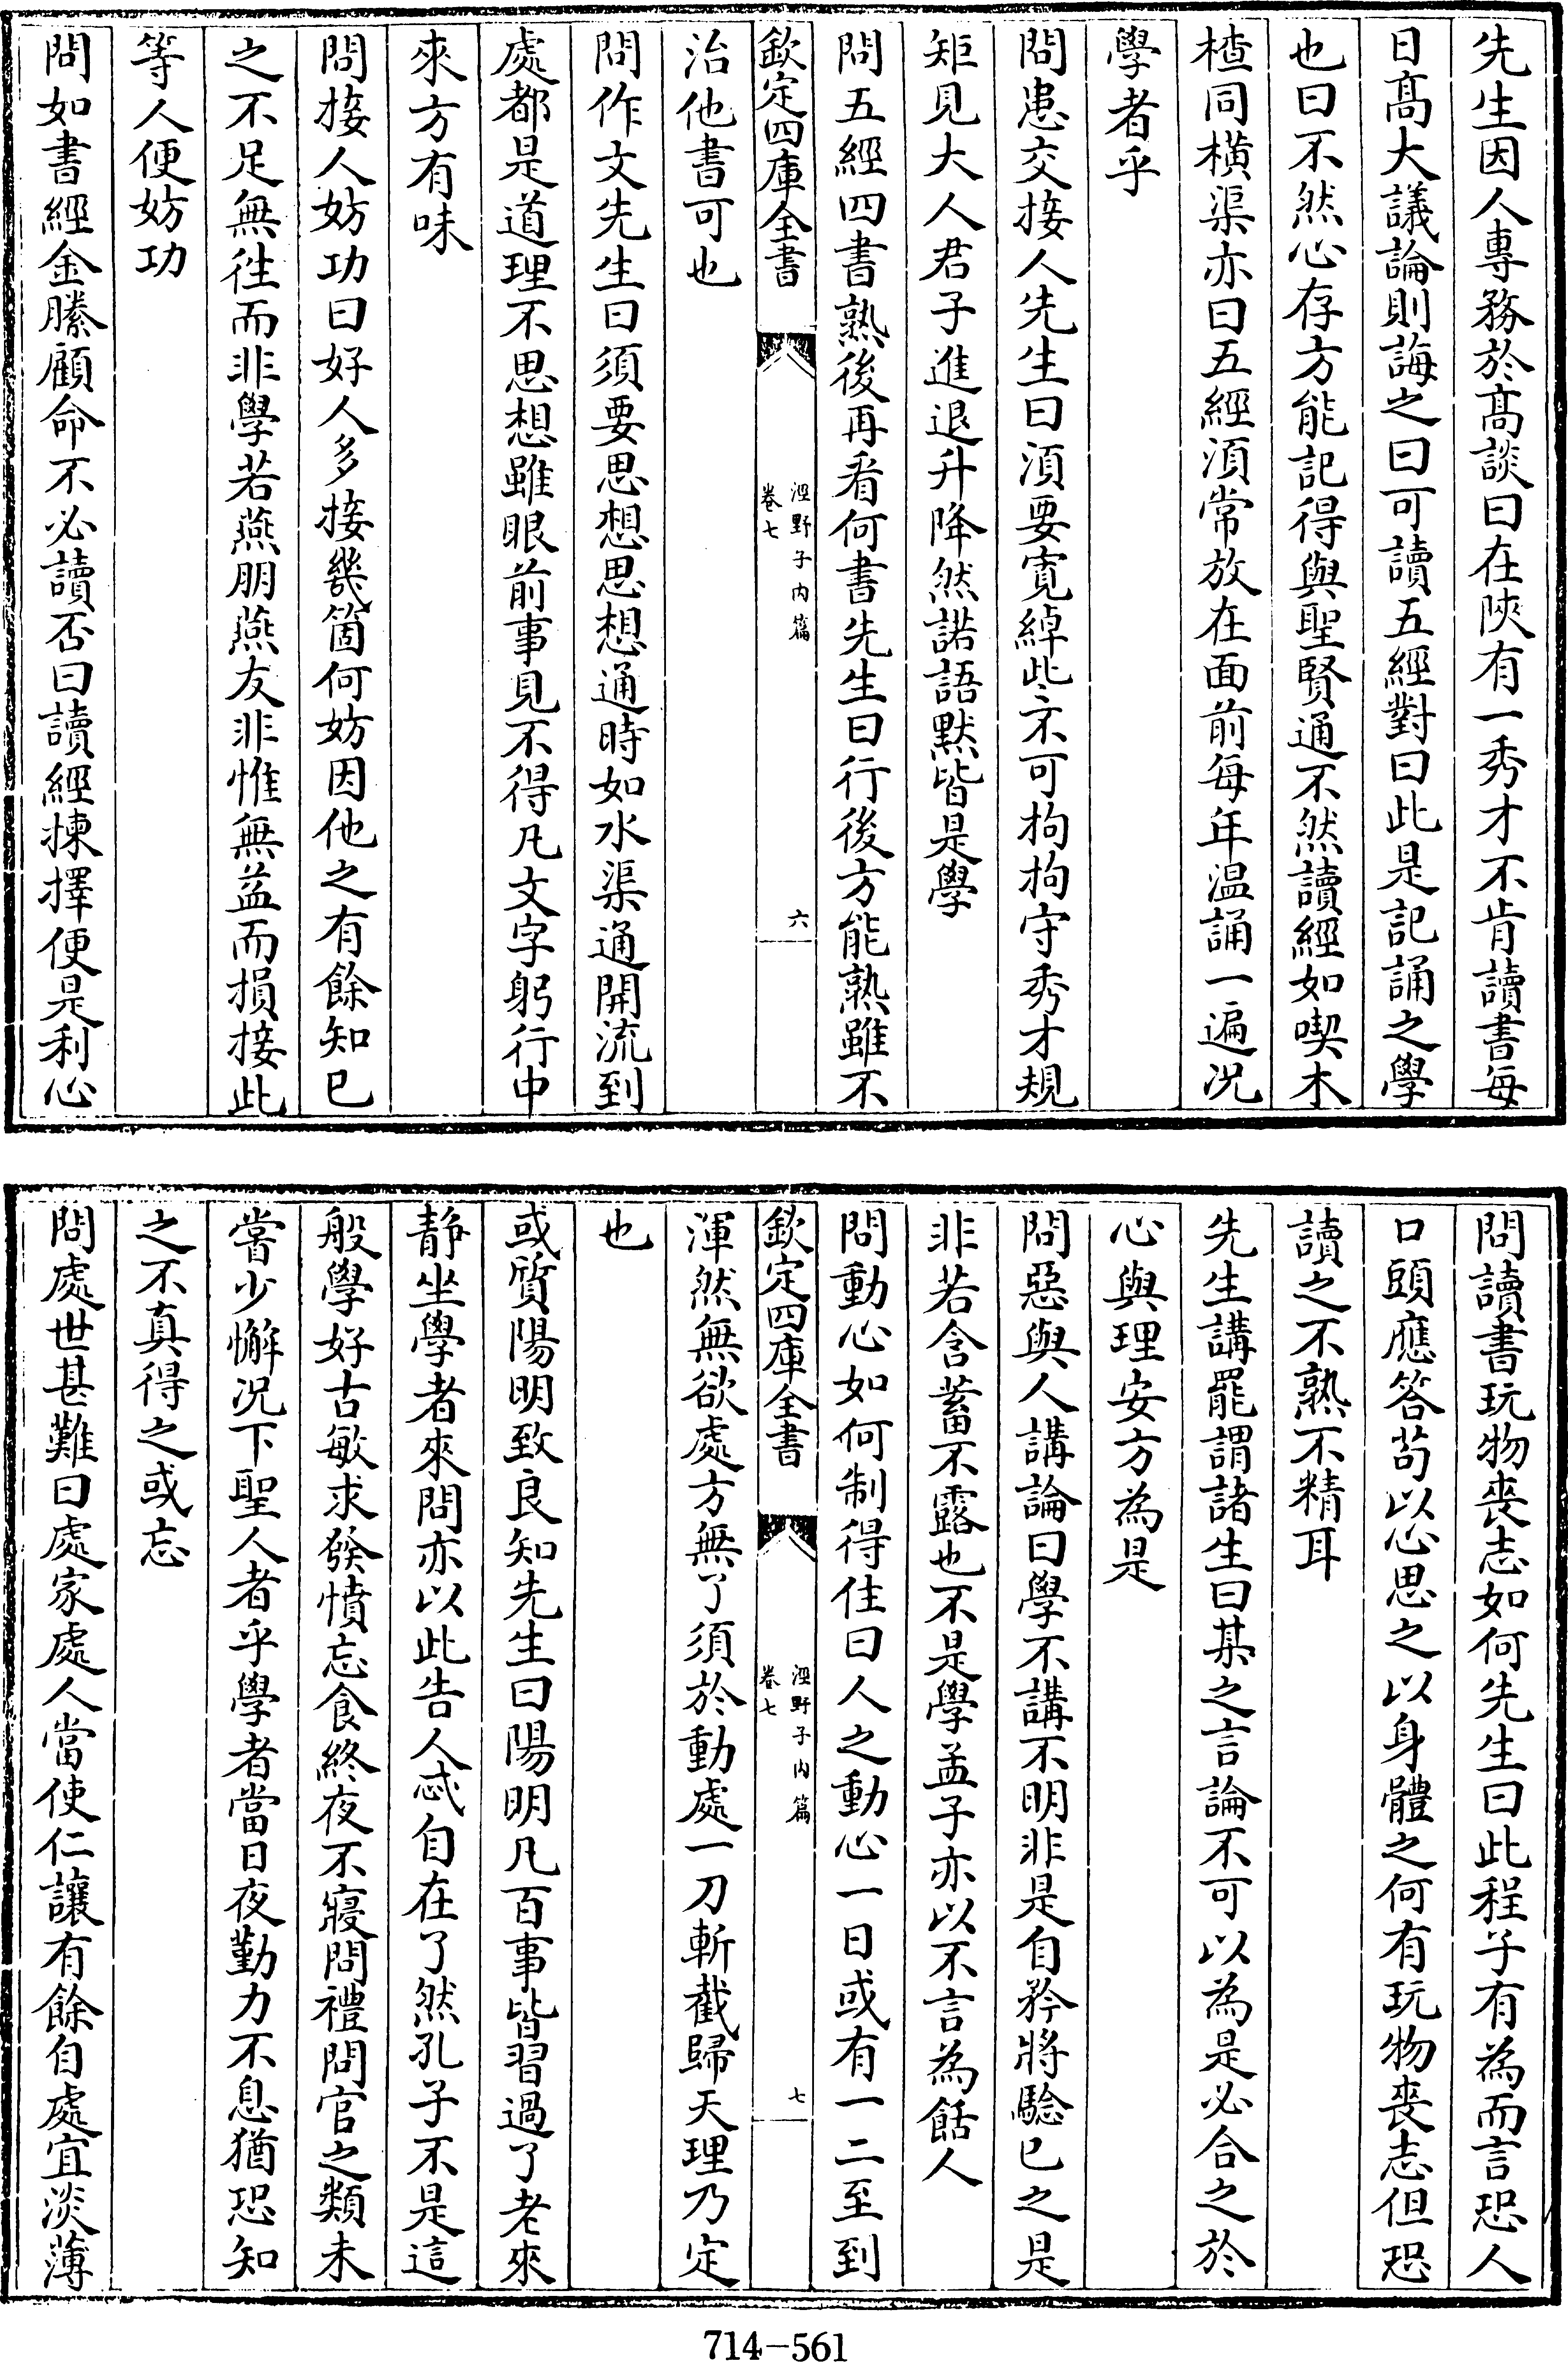 先生因人專務於髙談曰在陜有一秀才不肯讀書每
日髙大議論則誨之曰可讀五經對曰此是記誦之學
也曰不然心存方能記得與聖賢通不然讀經如喫木
楂同橫渠亦曰五經湏常放在面前每年温誦一遍况
學者乎
問患交接人先生曰湏要寛綽些不可拘拘守秀才規
矩見大人君子進退升降然諾語默皆是學
問五經四書熟後再看何書先生曰行後方能熟雖不
欽定四庫全書
涇野子内篇
卷七
六
治他書可也
問作文先生曰須要思想思想通時如水渠通開流到
處都是道理不思想雖眼前事見不得凡文字躬行中
來方有味
問接人妨功曰好人多接幾箇何妨因他之有餘知已
之不足無徃而非學若燕朋燕友非惟無益而損接此
等人便妨功
問如書經金縢顧命不必讀否曰讀經揀擇便是利心
問讀書玩物喪志如何先生曰此程子有為而言恐人
口頭應答苟以心思之以身體之何有玩物喪志但恐
讀之不熟不精耳
先生講罷謂諸生曰某之言論不可以為是必合之於
心與理安方為是
問惡與人講論曰學不講不明非是自矜將驗已之是
非若含蓄不露也不是學孟子亦以不言為餂人
問動心如何制得住曰人之動心一日或有一二至到
欽定四庫全書
涇野子内篇
卷七
七
渾然無欲處方無了須於動處一刀斬截歸天理乃定
也
或質陽明致良知先生曰陽明凡百事皆習過了老來
静坐學者來問亦以此告人忒自在了然孔子不是這
般學好古敏求發憤忘食終夜不寢問禮問官之類未
嘗少懈况下聖人者乎學者當日夜勤力不息猶恐知
之不真得之或忘
問處世甚難曰處家處人當使仁讓有餘自處宜淡薄
714-561